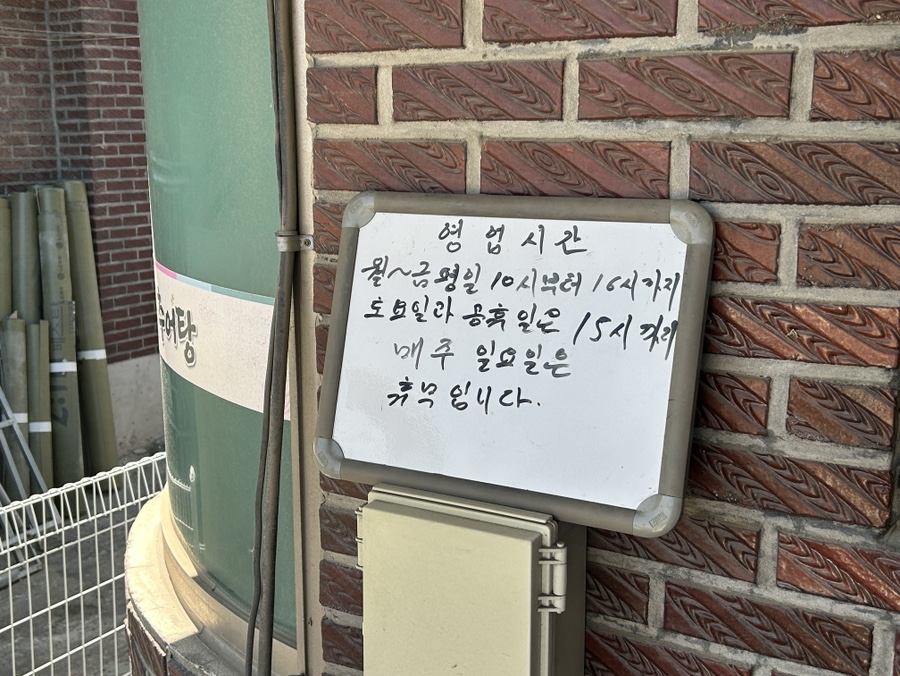 영업시간
월~금 평일 10시부터 16시까지
토요일과 공휴일은 15시까지
매주 일요일은
휴무입니다.
어탕